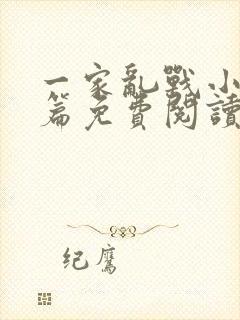 一家亂戰小
篇免費閱讀
纪鹰